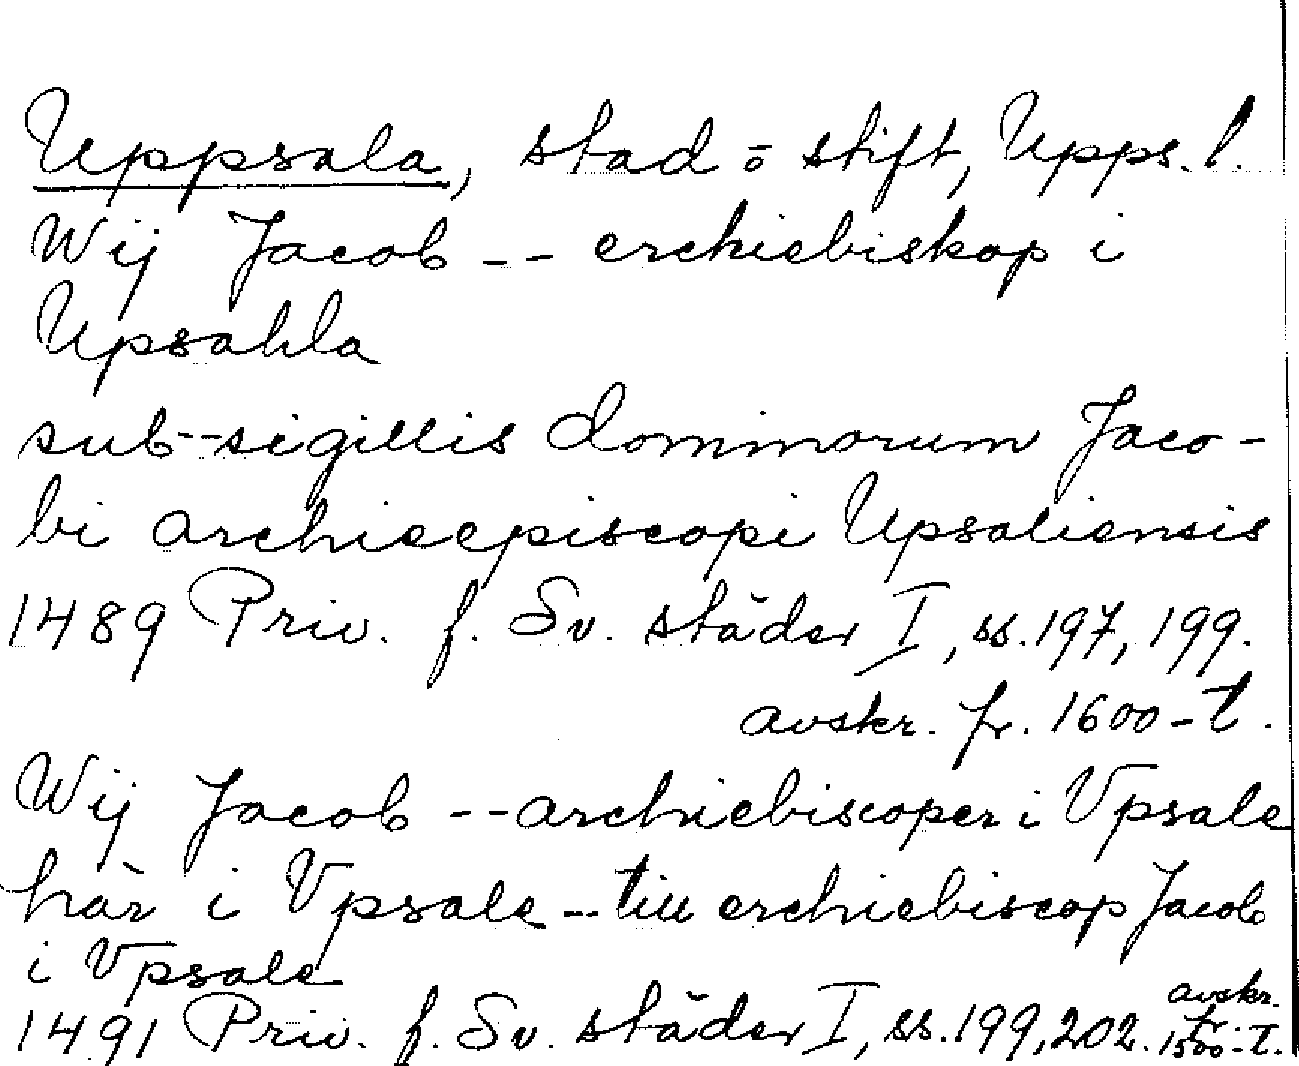 Uppsala, stad o stift, Upps. l.
Wij Jacob -- erchiebiskop i
Upsahla
sub--sigillis dominorum Jaco-
bi archieepiscopi Upsaliensis
1489 Priv. f. Sv. städer I, ss. 197, 199.
avskr. fr. 1600-t.
Wij Jacob -- archiebiscoper i Vpsale
här i Vpsale -- till erchiebiscop Jacob
i Vpsale
1491 Priv. f. Sv. städer I, ss. 199, 202. avskr.
fr.
1500-t.